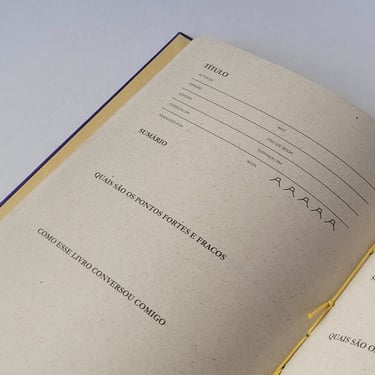 TÍTULO
AUTOR(A)
GÊNERO
EDITORA
ANO
COMECEI EM
FÍSICO/E-BOOK
TERMINEI EM
NOTA
SUMÁRIO
QUAIS SÃO OS PONTOS FORTES E FRACOS
COMO ESSE LIVRO CONVERSOU COMIGO
QUAIS SÃO O